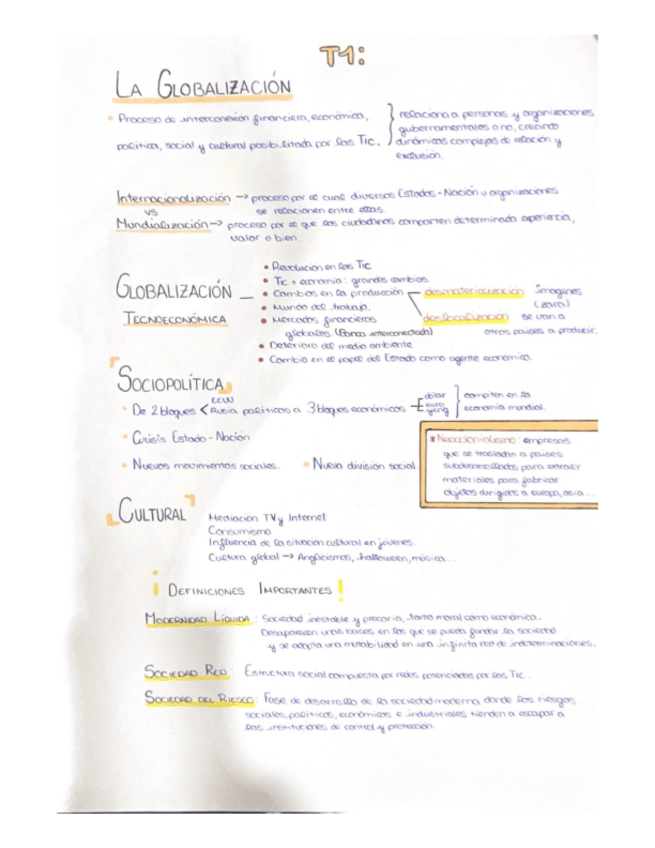 T1:
LA GLOBALIZACIÓN
• Proceso de interconexión financiera, económica,
política, social y cultural posibilitada por las Tic.
relaciona a personas y organizaciones
gubernamentales o no, creando
dinámicas complejas de relación y
exclusión.
Internacionalización → proceso por el cual diversos Estados-Nación u organizaciones
se relacionen entre ellas.
vs
Mundialización → proceso por el que los ciudadanos comparten determinada experiencia,
valor o bien.
GLOBALIZACIÓN
TECNOECONÓMICA
• Revolución en las TIC
• Tic + economía: grandes cambios.
• Cambios en la producción
desmaterialización imagenes
(zara)
deslocalización se van a
otros países a producir.
• Mundo del trabajo.
• Mercados financieros
globales. (Banca interconectada)
• Deterioro del medio ambiente
• Cambio en el papel del Estado como agente económico.
SOCIOPOLÍTICA
• De 2 bloques < EEUU Rusia políticos a 3 bloques económicos
dolar
euro
yeng
compiten en la
economía mundial.
• Crisis Estado-Nación
• Nuevos movimientos sociales. • Nueva división social.
* Neocolonialismo: empresas
que se trasladan a países
subdesarrollados para extraer
materiales para fabricar
objetos dirigidos a europa, asia...
CULTURAL
Mediación TV y Internet
Consumismo
Influencia de la situación cultural en jóvenes.
Cultura global → Anglicismos, halloween, música...
¡DEFINICIONES IMPORTANTES!
MODERNIDAD LÍQUIDA: Sociedad inestable y precaria, tanto moral como económica.
Desaparecen unas bases en las que se pueda fundar la sociedad
y se adopta una mutabilidad en una infinita red de indeterminaciones.
SOCIEDAD RED: Estructura social compuesta por redes potenciadas por las Tic.
SOCIEDAD DEL RIESGO: Fase de desarrollo de la sociedad moderna donde los riesgos
sociales, políticos, económicos e industriales tienden a escapar a
las instituciones de control y protección.